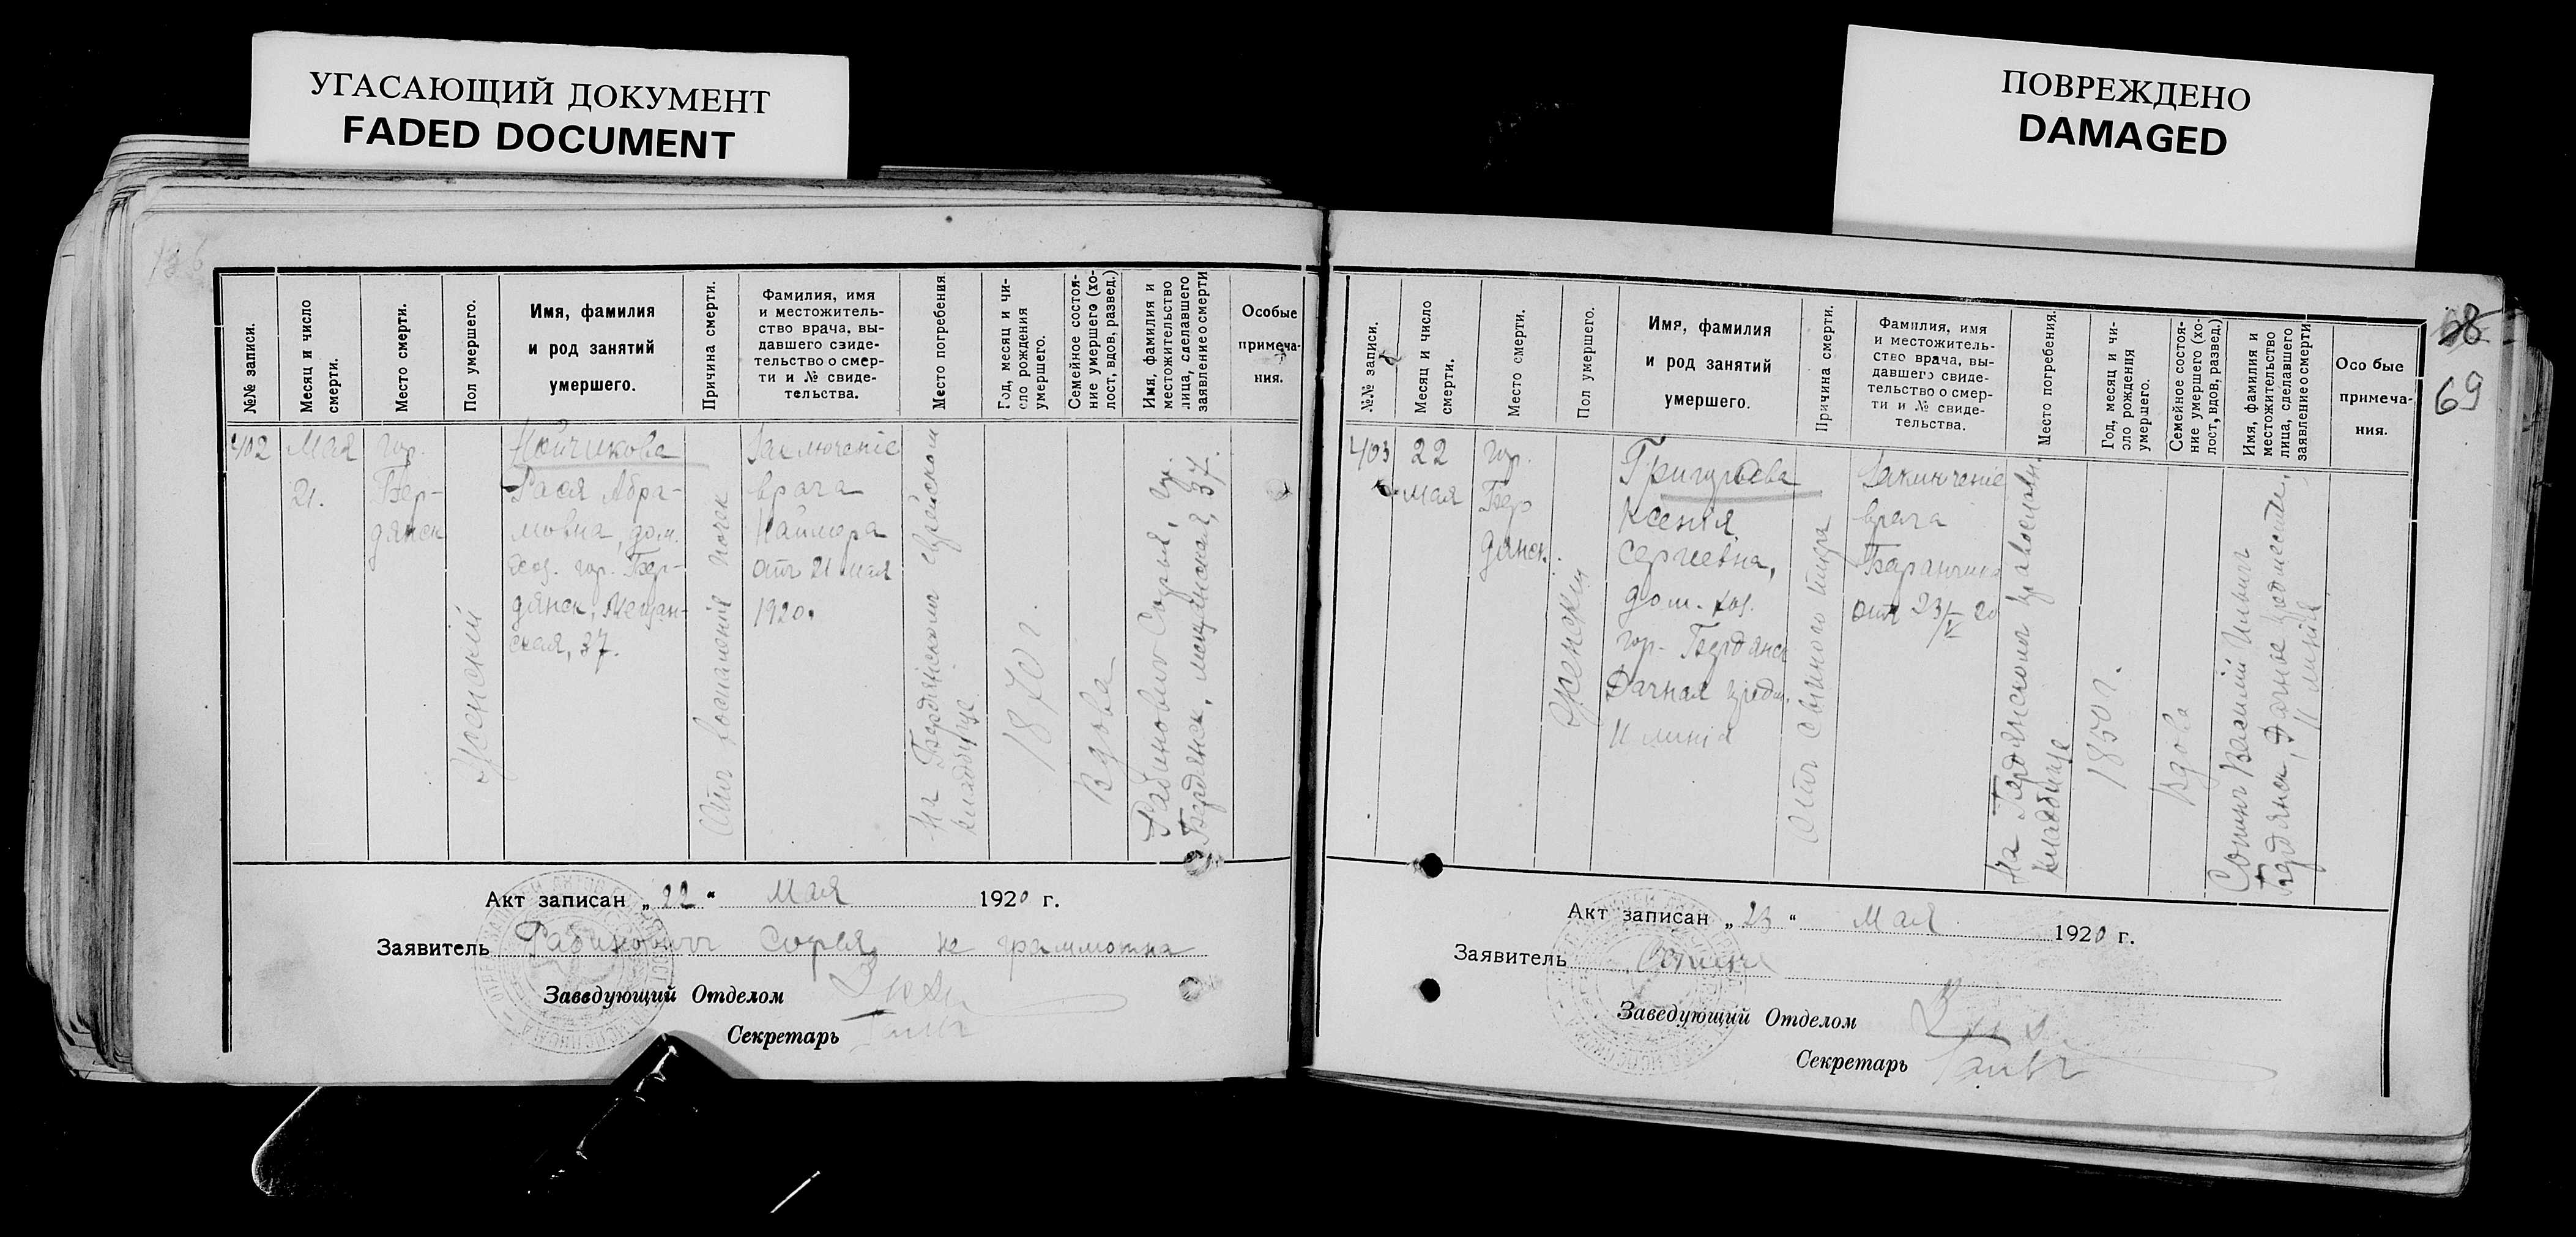 УГАСАЮЩИЙ ДОКУМЕНТ
FADED DOCUMENT
ПОВРЕЖДЕНО
DAMAGED
№№ записи.
Месяц и число
смерти.
Место смерти.
Пол умершего.
Имя, фамилия
и род занятий
умершего.
Причина смерти.
Фамилия, имя
и местожитель-
ство врача, вы-
давшего свиде-
тельство о смер-
ти и № свиде-
тельства.
Место погребения
Год, месяц и чи-
сло рождения
умершего.
Семейное состоя-
ние умершего (хо-
лост, вдов, развед.)
Имя, фамилия и
местожительство
лица, сделавшего
заявление о смерти
Особые
примеча-
ния.
402
Мая
21.
гор.
Бер-
дянск
Женский
Рася Абра-
мовна, дом.
хоз. гор. Бер-
дянск, Мещан-
ская, 37.
Отъ воспаленія почек
Заключеніе
врача
отъ 21 мая
1920.
На Бердянскомъ еврейском
кладбище
1870 г.
Вдова
Рабиновичъ Софья, гр.
Бердянск, мещанская, 37.
Акт записан „22“ Мая 1920 г.
Заявитель Рабинович Софья не граммотна
Заведующий Отделом
Секретарь
68
69
№№ записи.
Месяц и число
смерти.
Место смерти.
Пол умершего.
Имя, фамилия
и род занятий
умершего.
Причина смерти.
Фамилия, имя
и местожитель-
ство врача, вы-
давшего свиде-
тельство о смер-
ти и № свиде-
тельства.
Место погребения.
Год, месяц и чи-
сло рождения
умершего.
Семейное состоя-
ние умершего (хо-
лост, вдов, развед.)
Имя, фамилия и
местожительство
лица, сделавшего
заявление о смерти
Особые
примеча-
ния.
403
22
мая
гор.
Бер
дянск.
Женский
Григурьева
Ксенія
Сергеевна,
дом. хоз.
гор. Бердянск
Дачная предм.
II линія
Заключеніе
врача
отъ 23/V 20
На Бердянском православн.
кладбище
1850 г.
Вдова
Василий Ильичъ
Бердянск, Дачное предместье,
II линія
Акт записан „23“ Мая 1920 г.
Заявитель
Заведующий Отделом
Секретарь